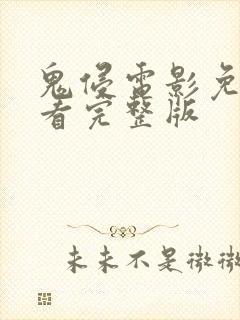 鬼侵雷影免
看完整版
未来不是微微